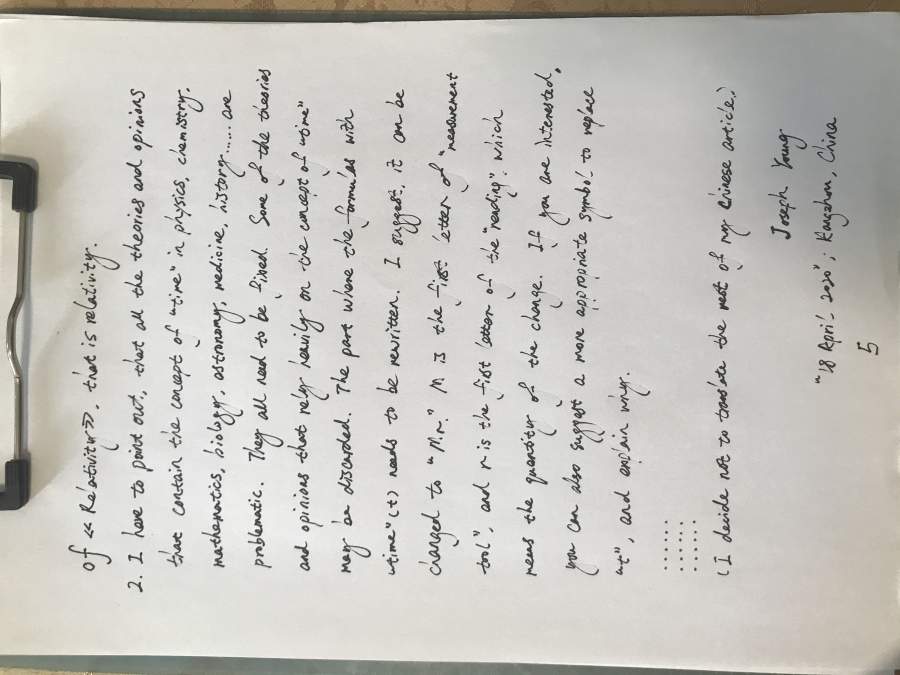 of ≪Relativity≫, that is relativity.
2. I have to point out, that all the theories and opinions
that contain the concept of "time" in physics, chemistry,
mathematics, biology, astronomy, medicine, history...... are
problematic. They all need to be fixed. Some of the theories
and opinions that rely heavily on the concept of "time"
may be discarded. The part where the formulas with
"time" (t) needs to be rewritten. I suggest, it can be
changed to "M.r." M is the first letter of "measurement
tool", and r is the first letter of the "reading". which
means the quantity of the change. If you are interested,
you can also suggest a more appropriate symbol to replace
"t", and explain why.
.......
.......
.......
(I decide not to translate the rest of my Chinese article.)
Joseph Young
"18 April 2020"; Hangzhou, China
5